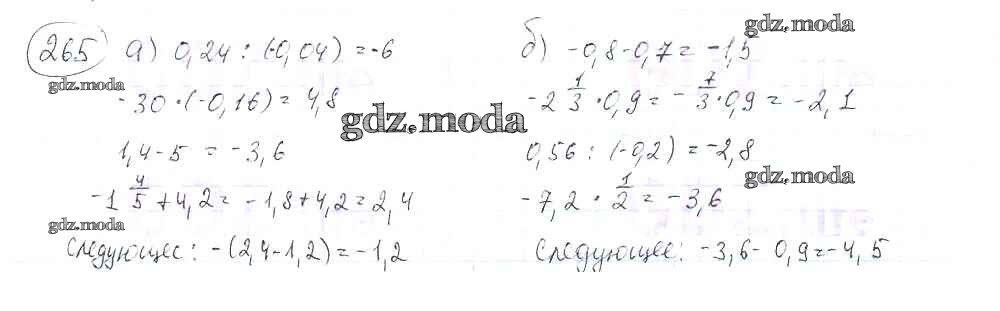 265 а) 0,24 : (-0,04) = -6
-30 · (-0,16) = 4,8
1,4 - 5 = -3,6
-1 4/5 + 4,2 = -1,8 + 4,2 = 2,4
Следующее: -(2,4 - 1,2) = -1,2
б) -0,8 - 0,7 = -1,5
-2 1/3 · 0,9 = - 7/3 · 0,9 = -2,1
0,56 : (-0,2) = -2,8
-7,2 · 1/2 = -3,6
Следующее: -3,6 - 0,9 = -4,5
gdz.moda
gdz.moda
gdz.moda
gdz.moda
gdz.moda
gdz.moda